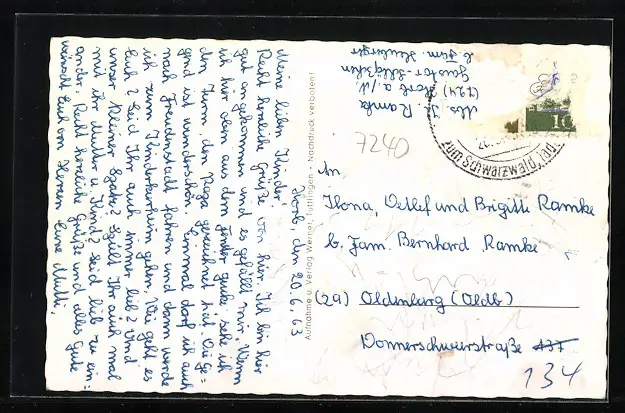 Horb, den 20.6.63
Meine lieben Kinder.
Recht herzliche Grüße von hier. Ich bin hier
gut angekommen und es gefällt mir. Wenn
ich hier oben aus dem Fenster gucke, sehe ich
den Turm, den Papa gezeichnet hat. Die Ge=
gend ist wunderschön. Einmal darf ich auch
nach Freudenstadt fahren und dann werde
ich zum Kinderkurheim gehen. Wie geht es
Euch? Seid Ihr auch immer lieb? Und
unser kleiner Spatz? Spielt Ihr auch mal
mit ihr Mutter u. Kind? Seid lieb zu ein=
ander. Recht herzliche Grüße und alles Gute
wünscht Euch von Herzen Eure Mutti.
Aufnahme u. Verlag Werner, Tuttlingen - Nachdruck verboten!
Abs. J. Ramke
(72a) Horb a/N.
b. Fam.
7240
10
zum Schwarzwald
An
Ilona, Detlef und Brigitte Ramke
b. Fam. Bernhard Ramke
(2a) Oldenburg (Oldb)
Donnerschweerstraße 137
134